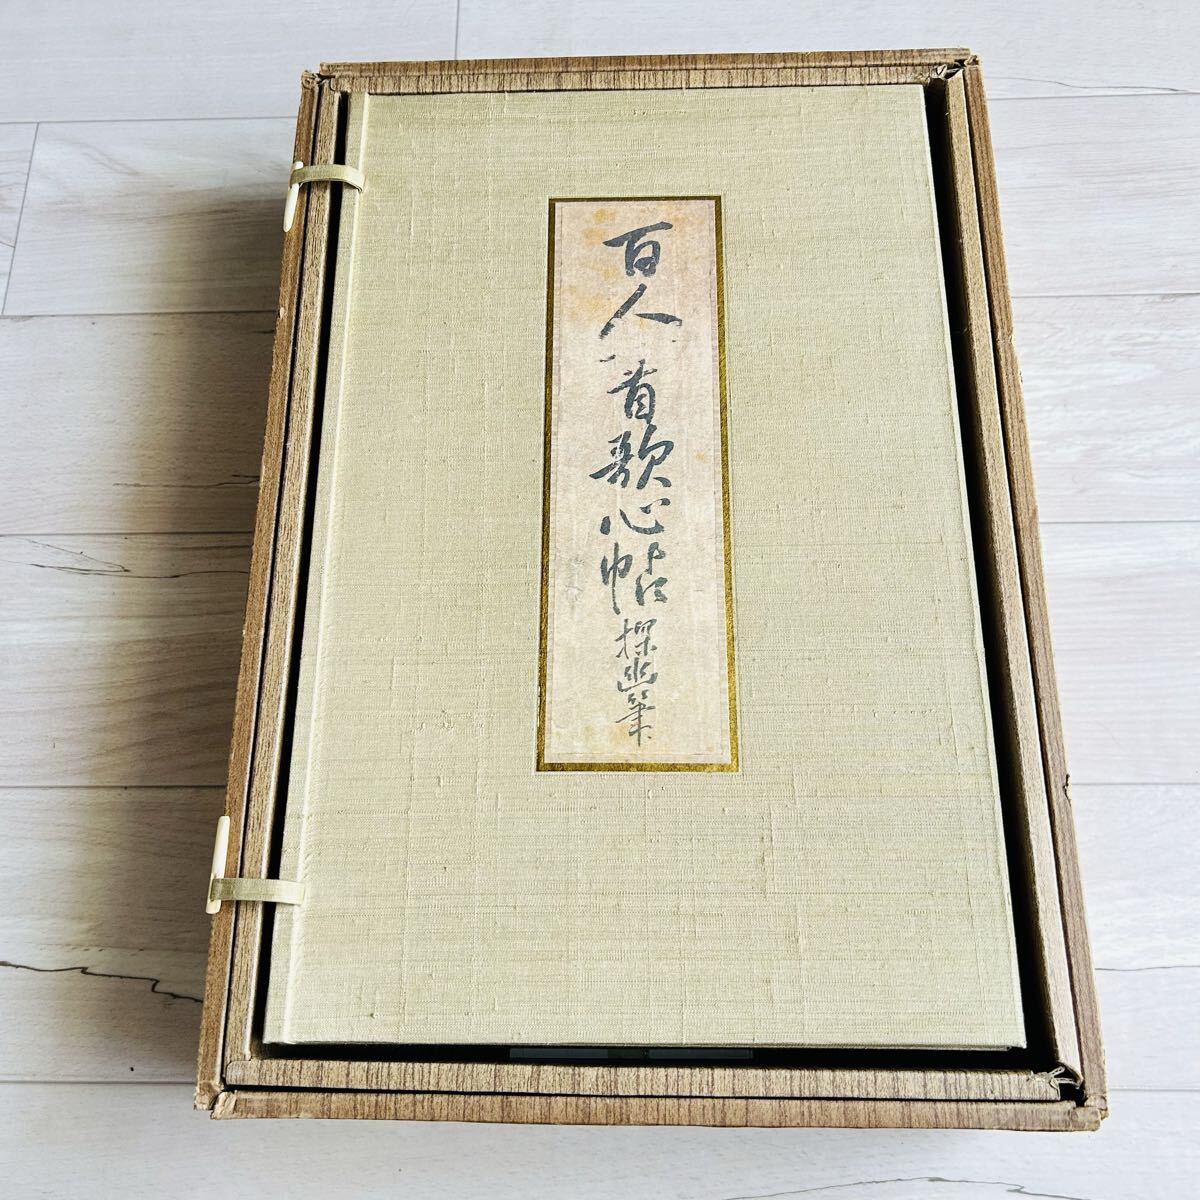 百人一首歌心帖探幽筆